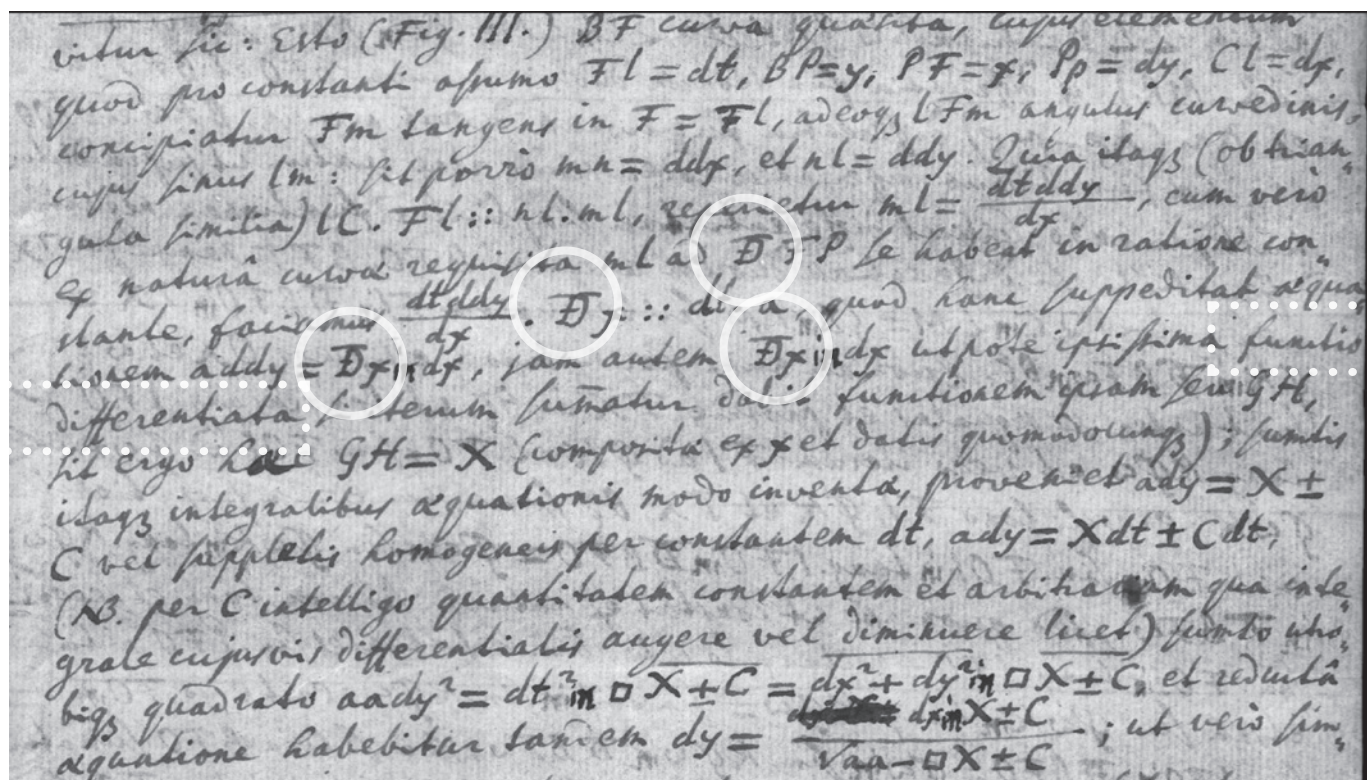 vitur sic: Esto (Fig. III.) BF curva quæsita, cujus elementum
quod pro constanti assumo Fl = dt, BP = y, PF = x, Pp = dy, Cl = dx,
concipiatur Fm tangens in F = Fl, adeoq; lFm angulus curvedinis,
cujus sinus lm: sit porrò mn = ddx, et nl = ddy. Quia itaq; (ob trian„
gula similia) lC. Fl :: nl. ml, reperietur ml = dtddy/dx, cum verò
ex naturâ curvæ requisita ml ad Đ FP se habeat in ratione con„
stante, faciamus dtddy/dx . Đx :: dt. a quod hanc suppeditat æqua
tionem addy = Đx in dx, jam autem Đx in dx utpote ipsissima functio
differentiata si iterum sumatur dabit functionem ipsam seu GH,
sit ergo hæc GH = X (composita ex x et datis quomodocunq;); sumtis
itaq; integralibus æquationis modo inventæ, proveniet ady = X ±
C vel suppletis homogeneis per constantem dt, ady = Xdt ± Cdt,
(NB. per C intelligo quantitatem constantem et arbitrariam qua inte„
grale cujusvis differentialis augere vel diminuere licet) sumto utro„
biq; quadrato aady² = dt² in □ X ± C = dx² + dy² in □ X ± C, et reductâ
æquatione habebitur tandem dy = dx in X ± C / √aa – □ X ± C ; ut verò sim„